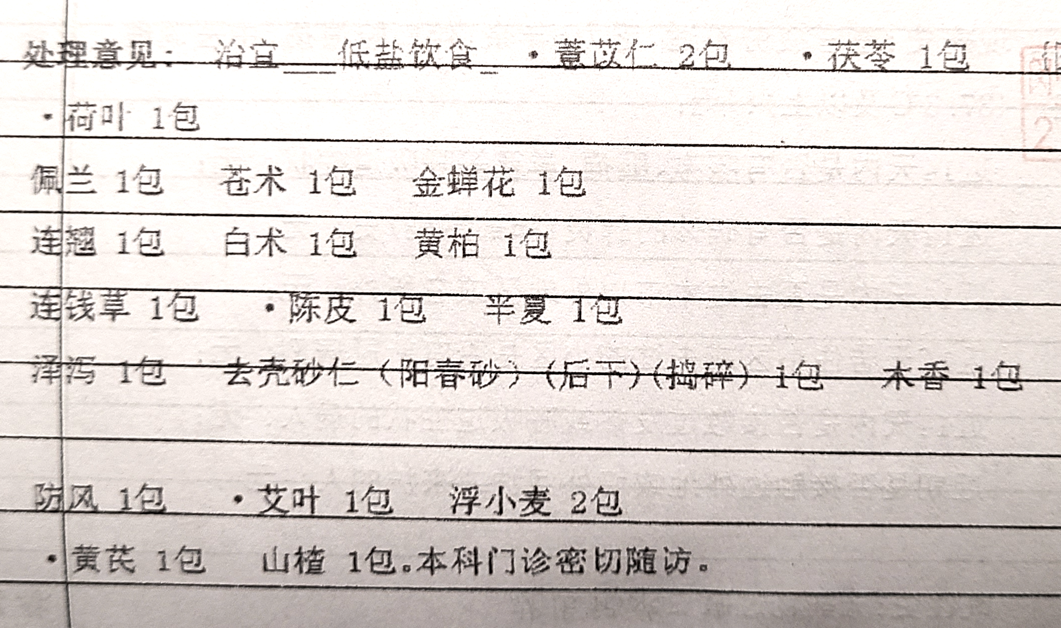 处理意见: 治宜___低盐饮食_ ·薏苡仁 2包 ·茯苓 1包
·荷叶 1包
佩兰 1包 苍术 1包 金蝉花 1包
连翘 1包 白术 1包 黄柏 1包
连钱草 1包 ·陈皮 1包 半夏 1包
泽泻 1包 去壳砂仁（阳春砂）(后下)(捣碎) 1包 木香 1包
防风 1包 ·艾叶 1包 浮小麦 2包
·黄芪 1包 山楂 1包。本科门诊密切随访。